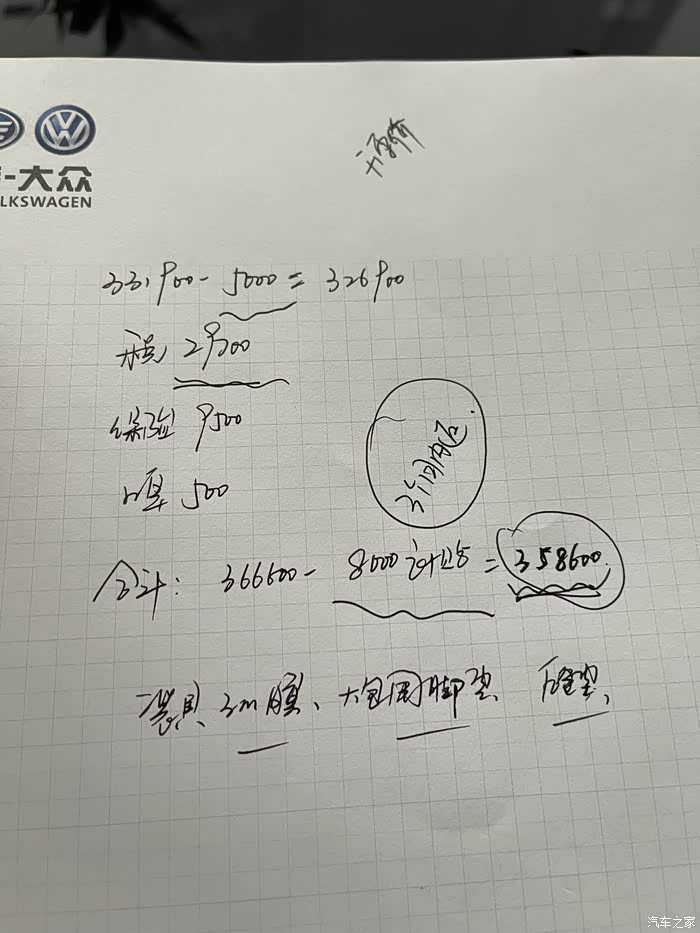 一大众
LKSWAGEN
331900-5000=326900
税 29700
保险 9500
上牌 500
合计: 366600-8000补贴=358600.
送 3m膜、大包围脚垫、后备垫、
汽车之家